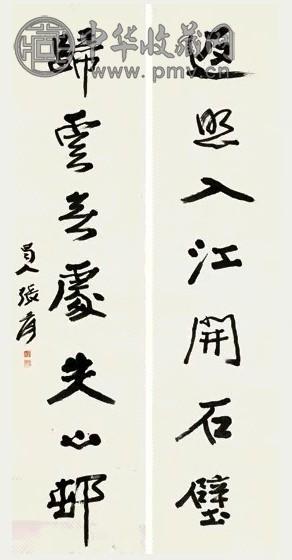 中华收藏网
www.pmv.cn
返照入江開石壁
歸雲處失山邨
蜀人張爰